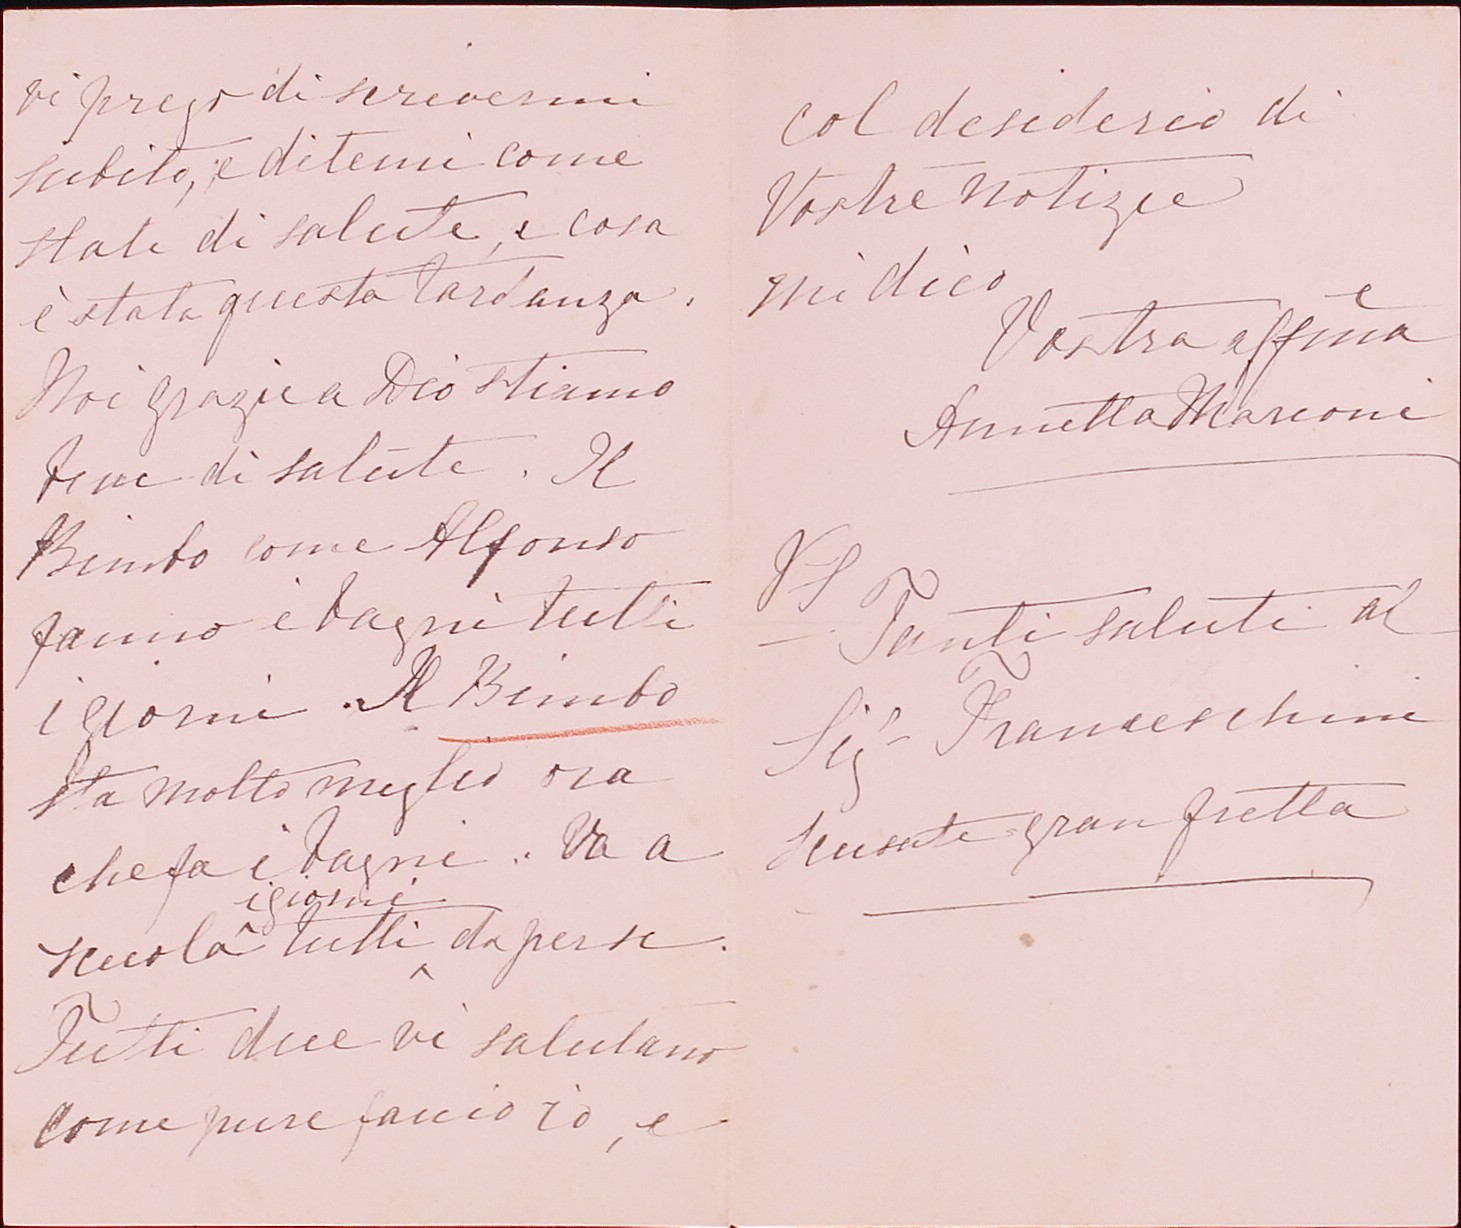 vi prego di scrivermi
subito, e ditemi come
state di salute, e cosa
è stata questa tardanza.
Noi grazie a Dio stiamo
bene di salute. Il
Bimbo come Alfonso
fanno i bagni tutti
i giorni. Il Bimbo
sta molto meglio ora
che fa i bagni. Va a
scuola tutti i giorni da per se.
Tutti due vi salutano
come pure faccio io, e
col desiderio di
Vostre notizie
mi dico
Vostra affma
Annetta Marconi
PS
Tanti saluti al
Sigr Franceschini
scusate gran fretta